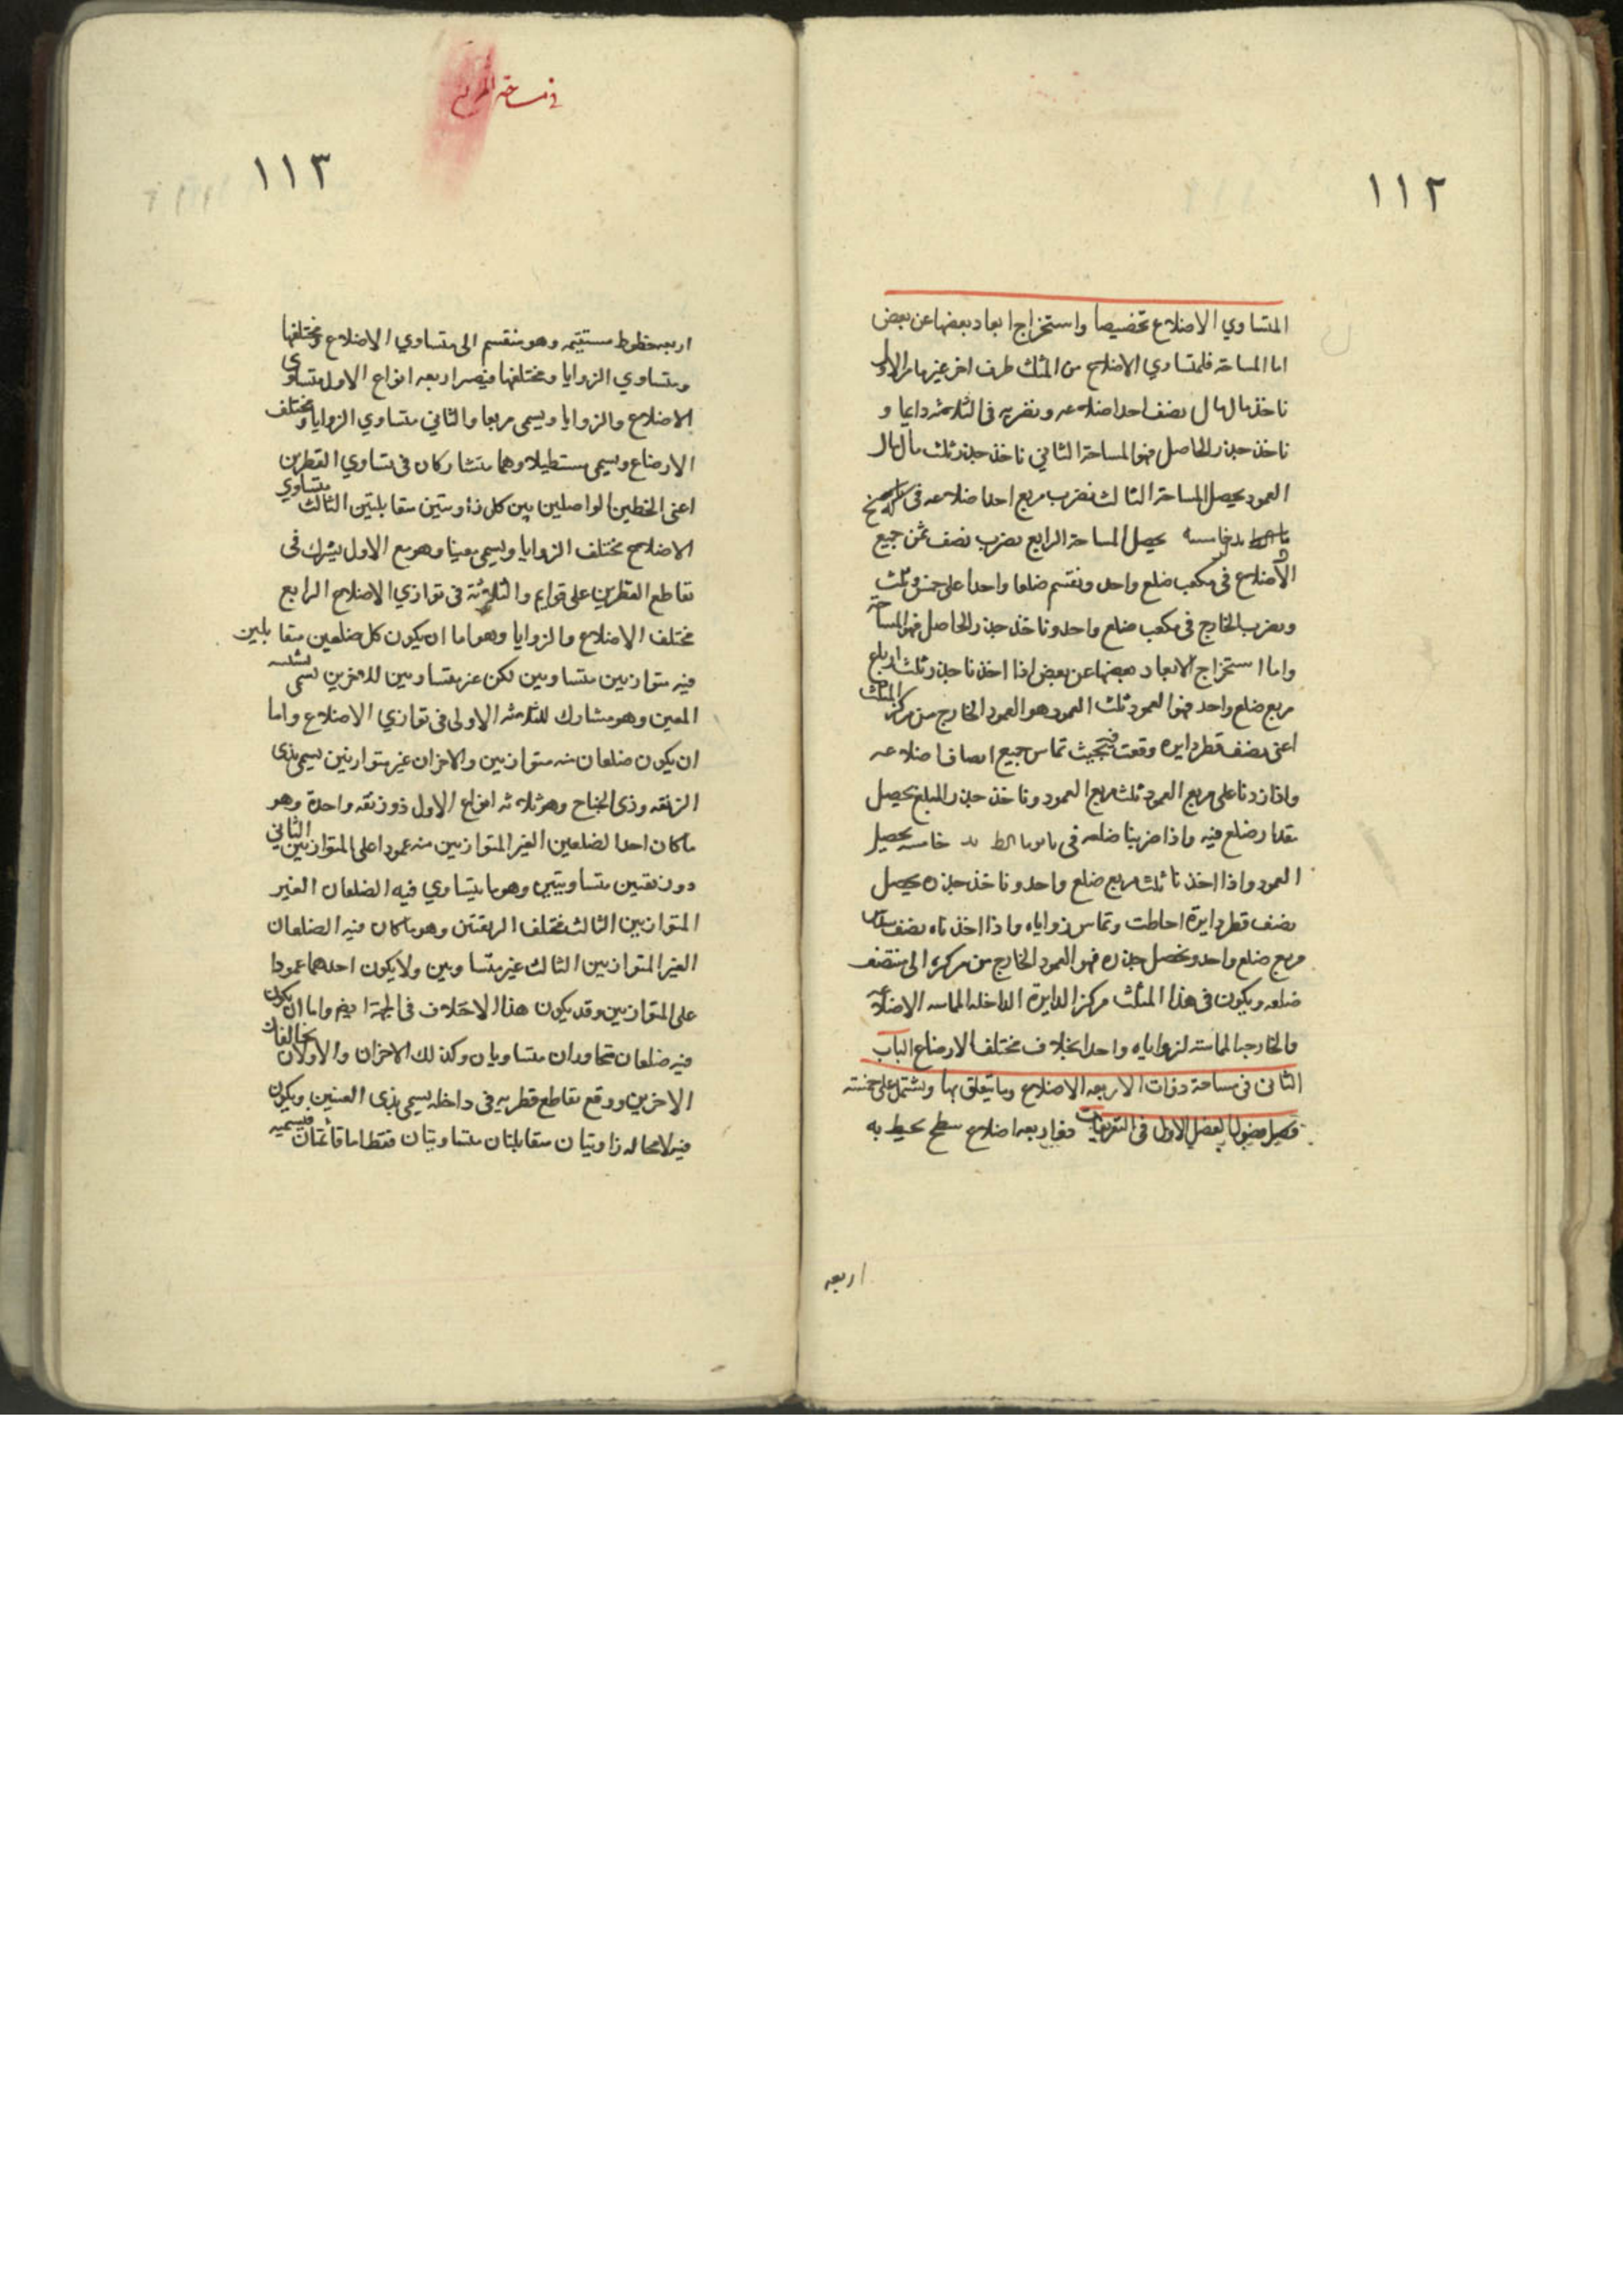 ١١٢
المتساوي الاضلاع تخصيصا واستخراج ابعاد بعضها عن بعض
اما المساحة فلمتساوي الاضلاع من المثلث طرف اخر غير ما مر الاول
ناخذ مال مال نصف احد اضلاعه ونضربه فى الثلاثه دايما و
ناخذ جذر الحاصل فهو المساحة الثاني ناخذ جذر ثلث مال مال
العمود يحصل المساحة الثالث نضرب مربع احد اضلاعه فى
خامسه يحصل المساحة الرابع نضرب نصف ثمن جميع
الاضلاع فى مكعب ضلع واحد ونقسم ضلعا واحدا على خمس وثلث
ونضرب الخارج فى مكعب ضلع واحد وناخذ جذر الحاصل فهو المساحة
واما استخراج الابعاد بعضها عن بعض اذا اخذنا جذر ثلثه ارباع
مربع ضلع واحد فهو العمود ثلث العمود هو العمود الخارج من مركز المثلث
اعنى نصف قطر دايره وقعت فيه بحيث تماس جميع انصاف اضلاعه
واذا زدنا على مربع العمود ثلث مربع العمود وناخذ جذر المبلغ يحصل
مقدار ضلع فيه واذا ضربنا ضلعه فى خامسه يحصل
العمود واذا اخذنا ثلث مربع ضلع واحد وناخذ جذره يحصل
نصف قطر دايرة احاطت وتماس زواياه واذا اخذناه نصف سدس
مربع ضلع واحد ونحصل جذره فهو العمود الخارج من مركزه الى منتصف
ضلعه ويكون فى هذا المثلث مركز الدايرة الداخله المماسه الاضلاعه
والخارجه المماسته لزواياه واحدا بخلاف مختلف الاضلاع الباب
الثانى فى مساحة ذوات الاربعه الاضلاع وما يتعلق بها ويشتمل على خمسته
فصول الفصل الاول فى التعريفات ذو اربعه اضلاع سطح يحيط به
اربعه
فى مساحة المربع
١١٣
اربعه خطوط مستقيمه وهو منقسم الى متساوي الاضلاع ومختلفها
ومتساوي الزوايا ومختلفها فيصر اربعه انواع الاول متساوى
الاضلاع والزوايا ويسمى مربعا والثاني متساوي الزوايا ومختلف
الاضلاع ويسمى مستطيلا وهما متشاركان فى تساوي القطرين
اعنى الخطين الواصلين بين كل زاويتين متقابلتين الثالث متساوي
الاضلاع مختلف الزوايا ويسمى معينا وهو مع الاول يشترك فى
تقاطع القطرين على قوايم والثلاثة فى توازي الاضلاع الرابع
مختلف الاضلاع والزوايا وهو اما ان يكون كل ضلعين متقابلين
فيه متوازيين متساويين لكن غير متساويين للاخرين يسمى بشبه
المعين وهو مشارك للثلاثه الاولى فى توازي الاضلاع واما
ان يكون ضلعان منه متوازيين والاخران غير متوازيين يسمى بذى
الزنقه وذى الجناح وهو ثلاثه انواع الاول ذو زنقه واحدة وهو
ما كان احد الضلعين الغير المتوازيين منه عمودا على المتوازيين الثاني
ذو زنقتين متساويتين وهو ما يتساوي فيه الضلعان الغير
المتوازيين الثالث مختلف الزنقتين وهو ما كان فيه الضلعان
الغير المتوازيين الثالث غير متساويين ولا يكون احدهما عمودا
على المتوازيين وقد يكون هذا الاختلاف فى الجهة ايضم واما ان يكون
فيه ضلعان متجاوران متساويان وكذلك الاخران والاولان يخالفان
الاخرين ووقع تقاطع قطريه فى داخله يسمى بذى العينين ويكون
فيه لا محاله زاويتان متقابلتان متساويتان فقط اما قائمتان فيسميه